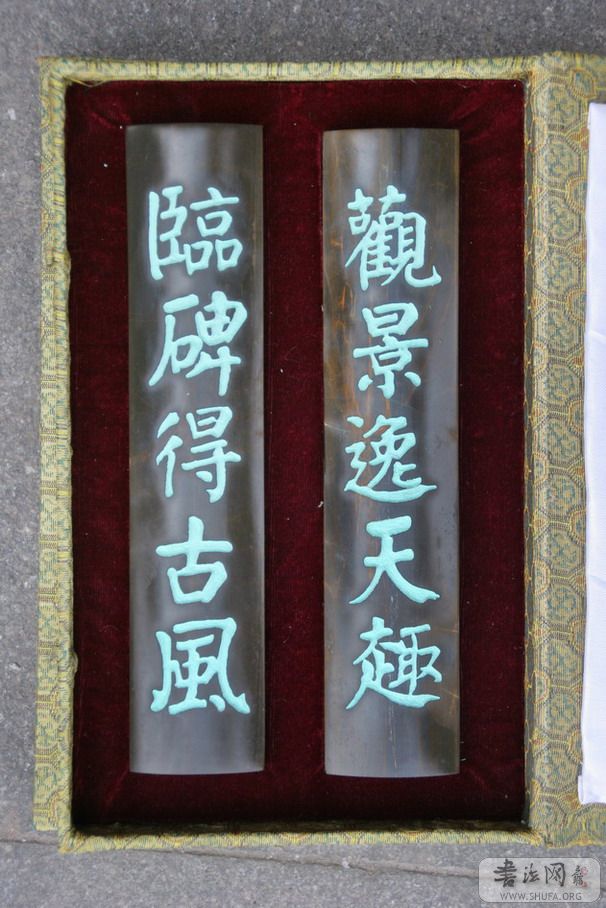 觀景逸天趣
臨碑得古風
书法网
WWW.SHUFA.ORG